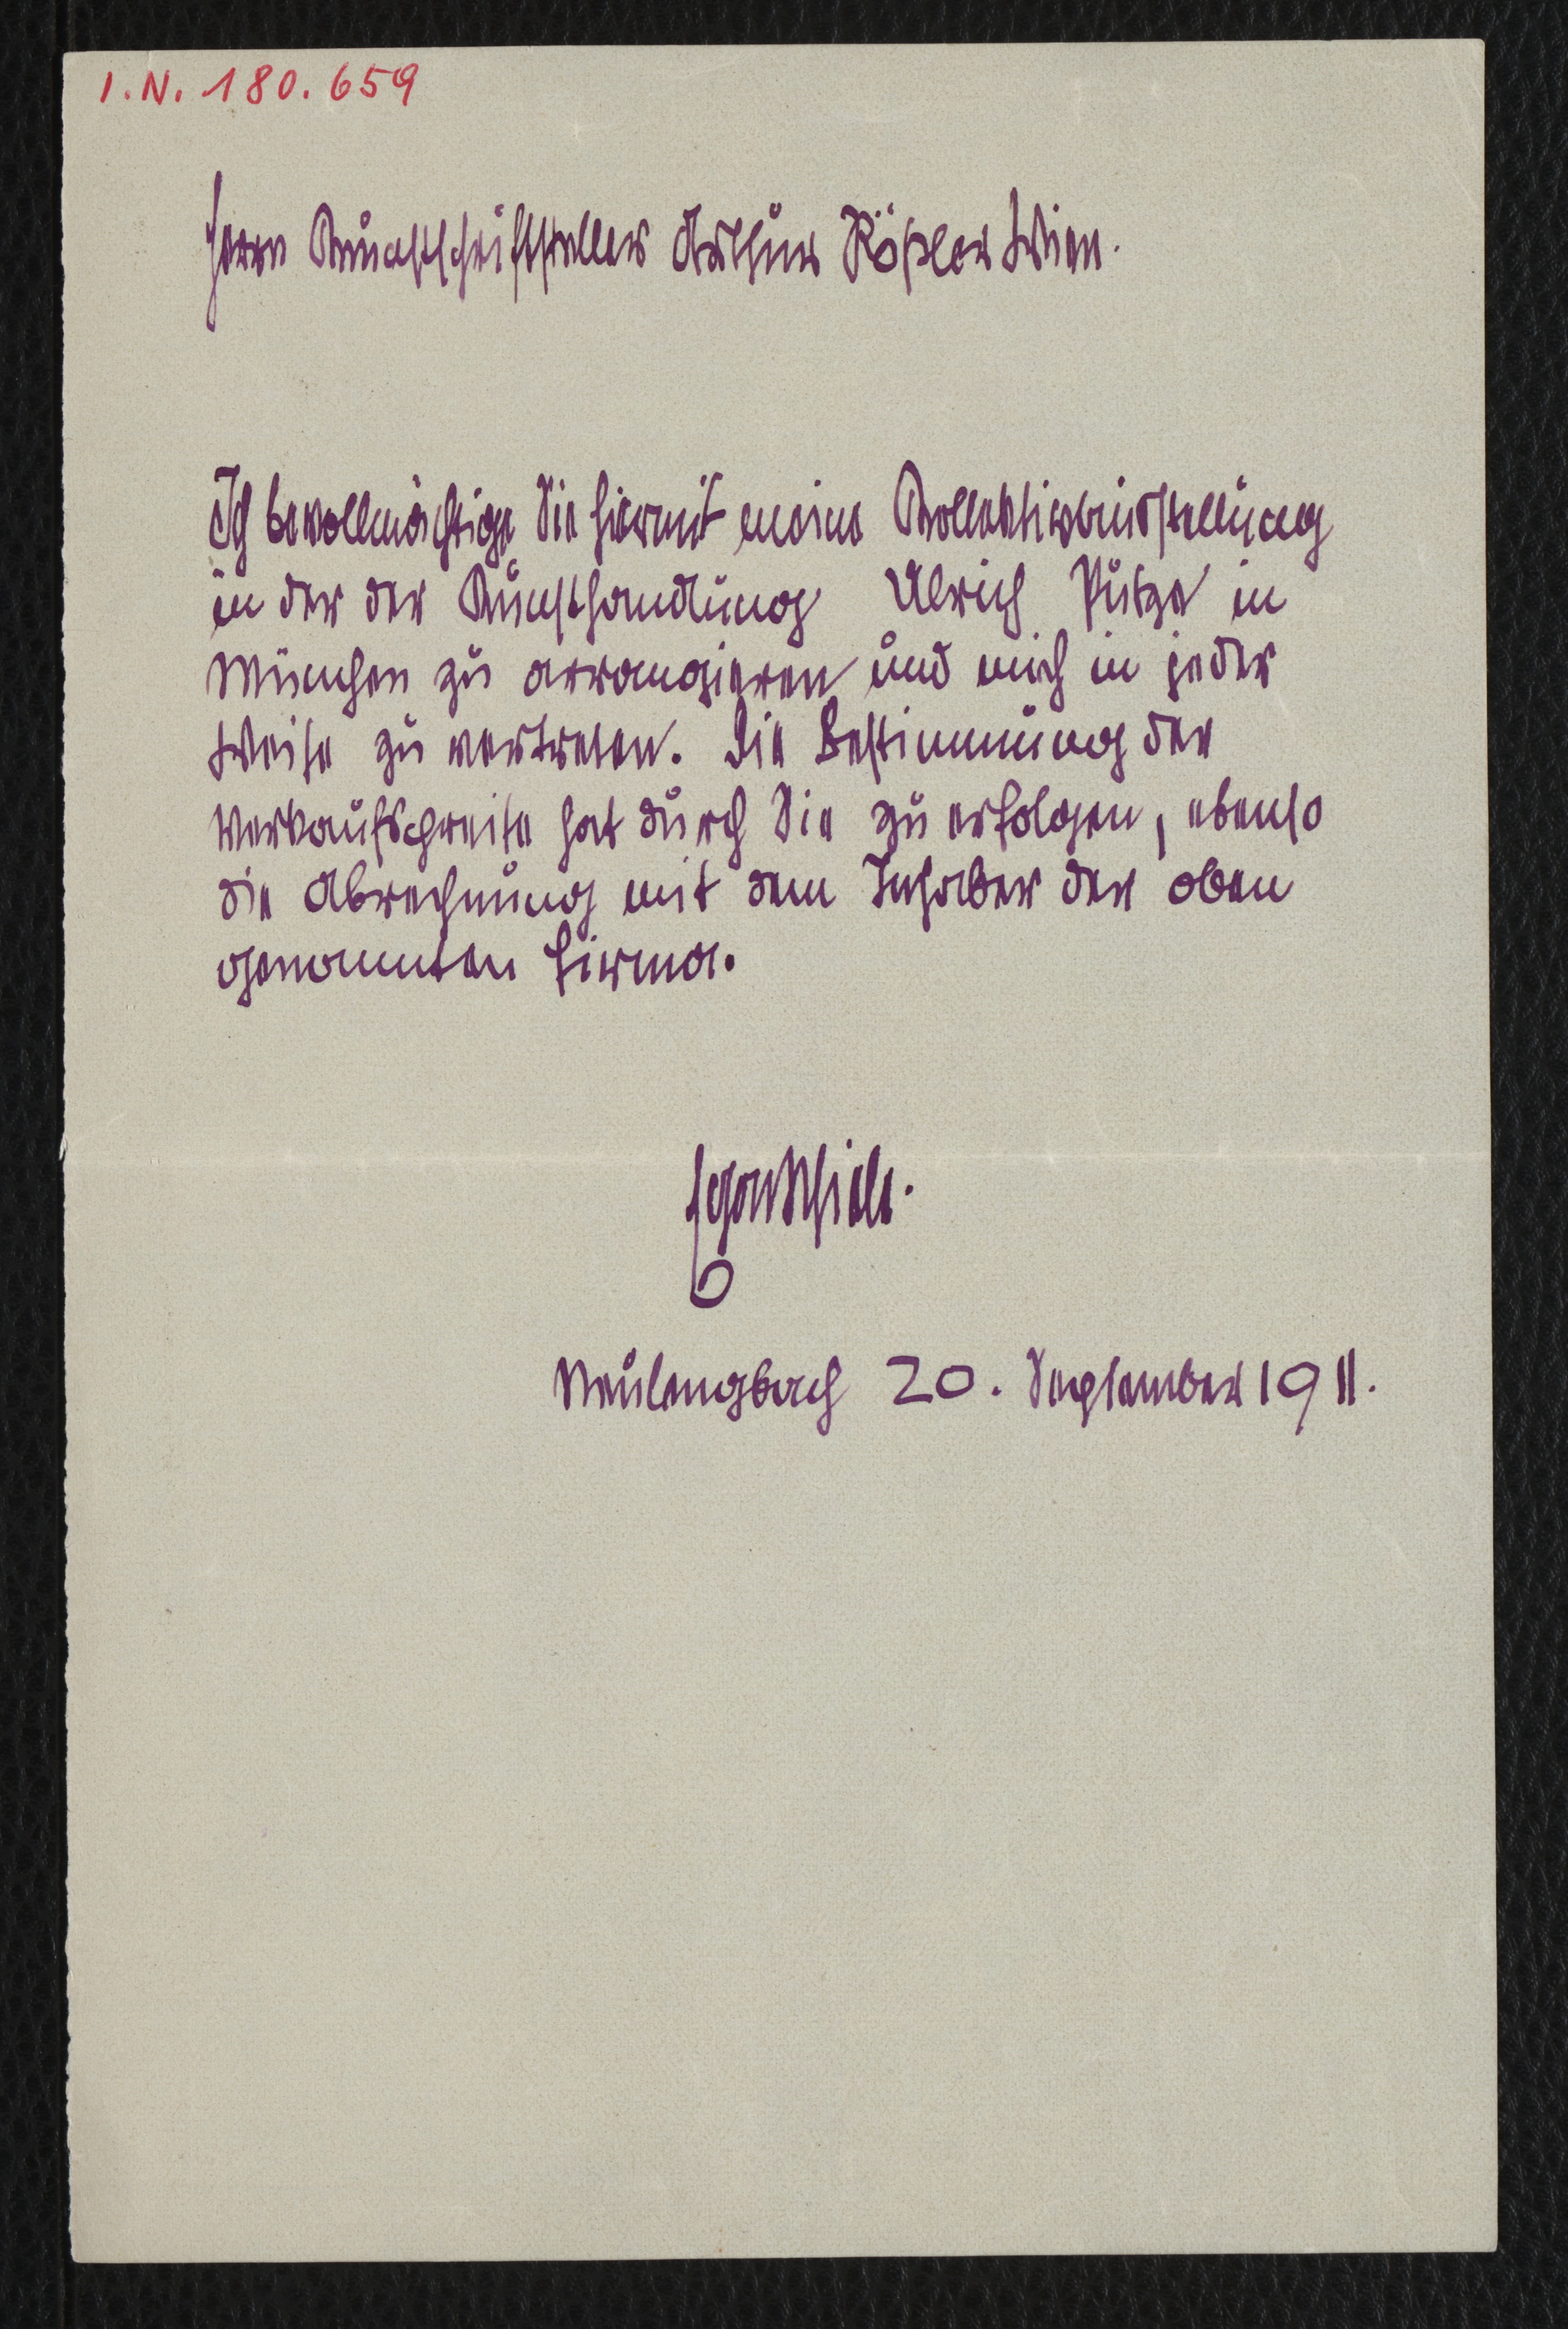 I.N. 180.659
Herrn Kunstschriftsteller Arthur Rößler Wien.
Ich bevollmächtige Sie hiermit meine Kollektivausstellung
in der der Kunsthandlung Ulrich Putze in
München zu arrangieren und mich in jeder
Weise zu vertreten. Die Bestimmung der
Verkaufspreise hat durch Sie zu erfolgen, ebenso
die Abrechnung mit dem Inhaber der oben
genannten Firma.
Egon Schiele.
Neulengbach 20. September 1911.